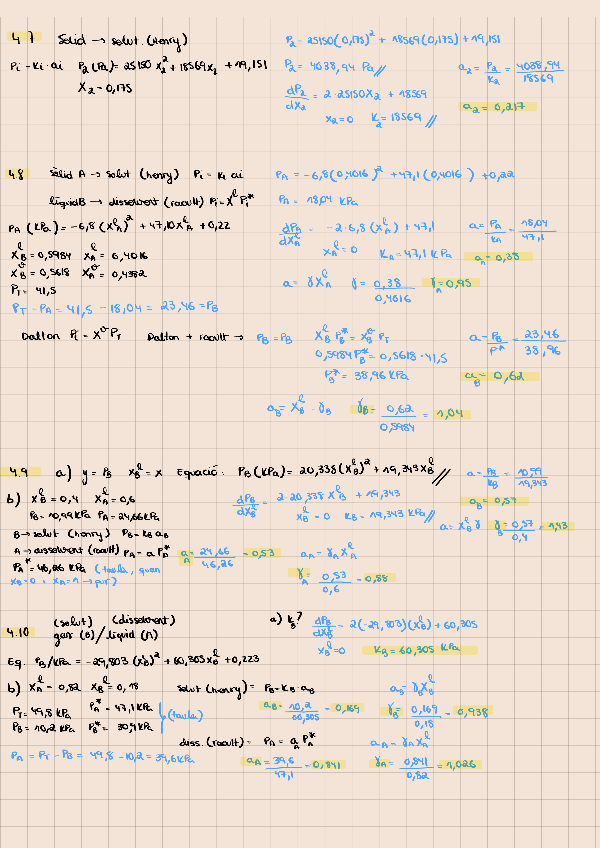 4.7 Solid → solut. (Henry)
Pi = Ki · ai P₂ (Pa) = 25150 x₂² + 18569x₂ + 19,151
X₂ = 0,175
P₂ = 25150(0,175)² + 18569(0,175) + 19,151
P₂ = 4038,94 Pa //
dP₂/dX₂ = 2·25150X₂ + 18569
x₂=0 K₂ = 18569 //
a₂ = P₂/K₂ = 4038,94/18569
a₂ = 0,217
4.8 sòlid A → solut (henry) Pi = Ki ai
líquid B → dissolvent (raoult) Pi = X^l Pi*
PA (KPa) = -6,8 (X^l_A)² + 47,10X^l_A + 0,22
X^l_B = 0,5984 X^l_A = 0,4016
X^v_B = 0,5618 X^v_A = 0,4382
PT = 41,5
PT - PA = 41,5 - 18,04 = 23,46 = PB
PA = -6,8(0,4016)² + 47,1(0,4016) + 0,22
PA = 18,04 KPa
dPA/dX^l_A = -2·6,8 (X^l_A) + 47,1
X^l_A = 0 KA = 47,1 KPa
a = PA/KA = 18,04/47,1
aA = 0,38
a = γXA γ = 0,38/0,4016 γA = 0,95
Dalton Pi = X^v PT Dalton + raoult → PB = PB X^l_B PB* = X^v_B PT
0,5984 PB* = 0,5618 · 41,5
PB* = 38,96 KPa
a = PB/P* = 23,46/38,96
aB = 0,62
aB = X^l_B · γB γB = 0,62/0,5984 = 1,04
4.9 a) y = PB X^l_B = x Equació: PB (KPa) = 20,338(X^l_B)² + 19,343X^l_B //
b) X^l_B = 0,4 X^l_A = 0,6
PB = 10,99 KPa PA = 24,66 KPa
B → solut (henry) PB = KB aB
A → dissolvent (raoult) PA = a PA*
PA* = 46,26 KPa (taula, quan
XB = 0 i XA = 1 → pur)
dPB/dX^l_B = 2·20,338 X^l_B + 19,343
X^l_B = 0 KB = 19,343 KPa //
a = PB/KB = 10,99/19,343
aB = 0,57
a = X^l_B γ γ = 0,57/0,4 = 1,43
aA = 24,66/46,26 = 0,53 aA = γA X^l_A
γA = 0,53/0,6 = 0,88
4.10 (solut) (dissolvent)
gas (B) / líquid (A)
Eq. PB/KPa = -29,803 (X^l_B)² + 60,305X^l_B + 0,223
a) KB? dPB/dX^l_B = 2(-29,803)(X^l_B) + 60,305
X^l_B = 0 KB = 60,305 KPa
b) X^l_A = 0,82 X^l_B = 0,18
PT = 49,8 KPa PA* = 47,1 KPa
PB = 10,2 KPa PB* = 30,9 KPa (taula)
PA = PT - PB = 49,8 - 10,2 = 39,6 KPa
solut (henry) = PB = KB · aB
aB = 10,2/60,305 = 0,169
aB = γB X^l_B
γB = 0,169/0,18 = 0,938
diss. (raoult) = PA = aA PA*
aA = 39,6/47,1 = 0,841
aA = γA X^l_A
γA = 0,841/0,82 = 1,026